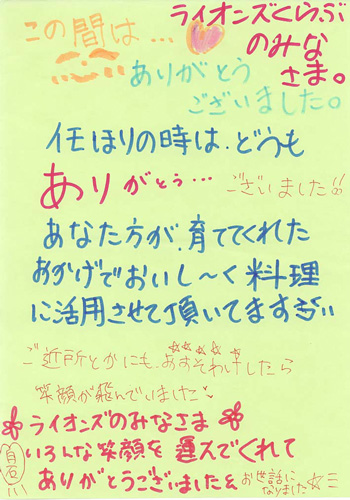 ライオンズくらぶ
のみな
さま。
この間は…
ありがとう
ございました。
イモほりの時は、どうも
ありがとう…ございました!!
あなた方が、育ててくれた
おかげでおいし〜く料理
に活用させて頂いてます
ご近所とかにも、おすそわけしたら
笑顔が飛んでいました
ライオンズのみなさま
いろんな笑顔を運んでくれて
ありがとうございました
お世話に
なりました